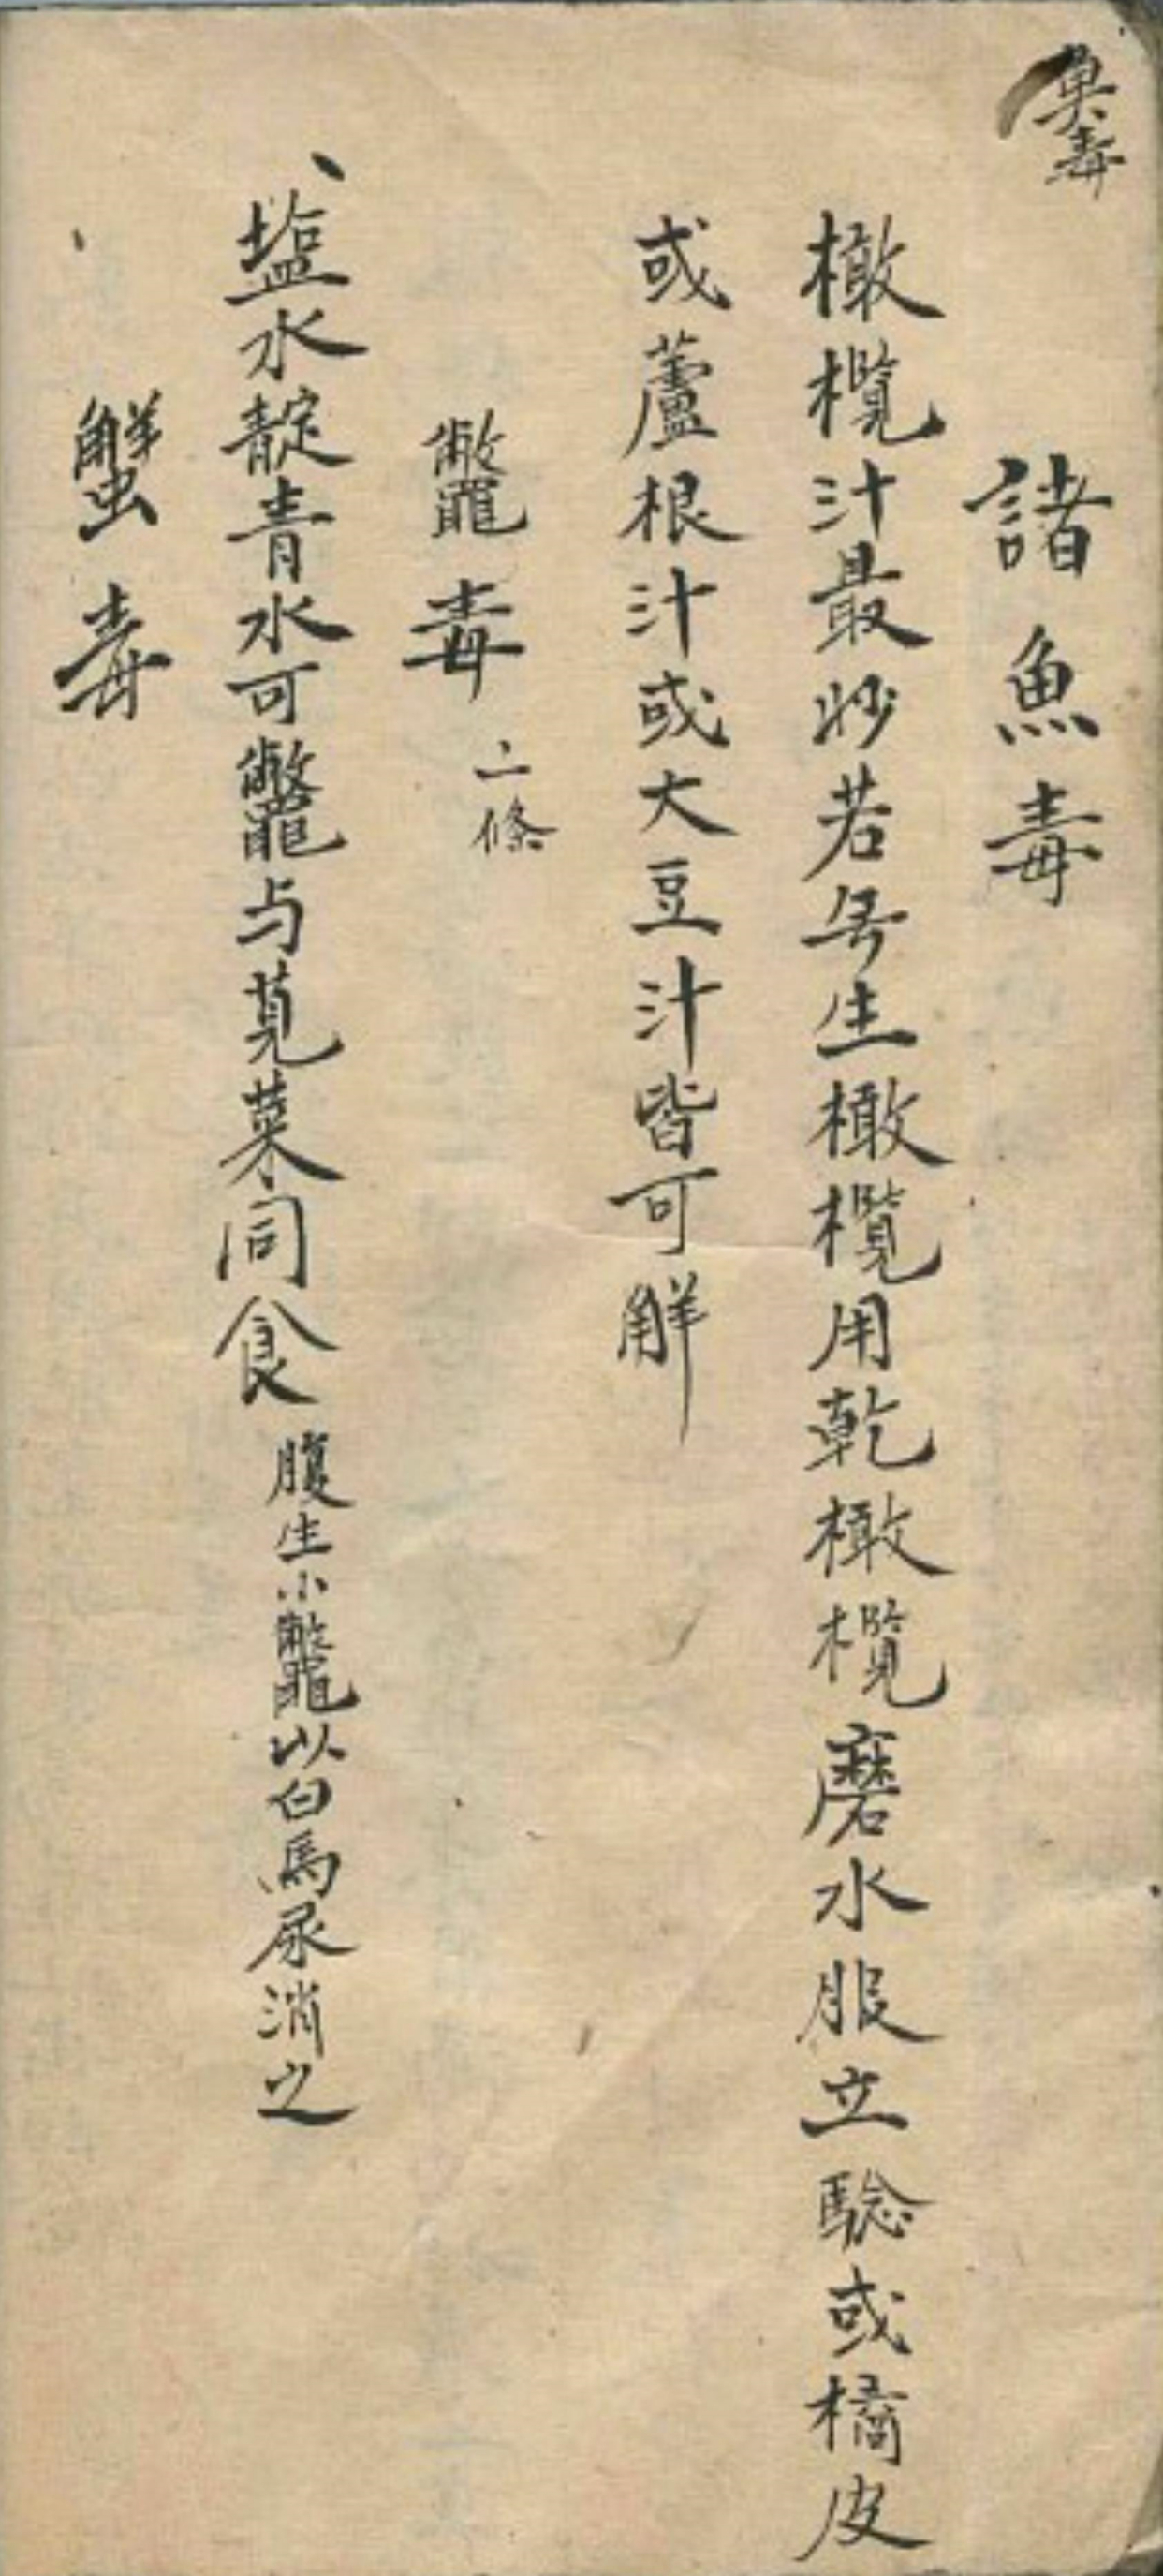 魚毒
諸魚毒
橄欖汁最妙若無生橄欖用乾橄欖磨水服立驗或橘皮
或蘆根汁或大豆汁皆可解
鼈毒 二條
塩水靛青水可鼈与莧菜同食 腹生小鼈以白馬尿消之
蟹毒